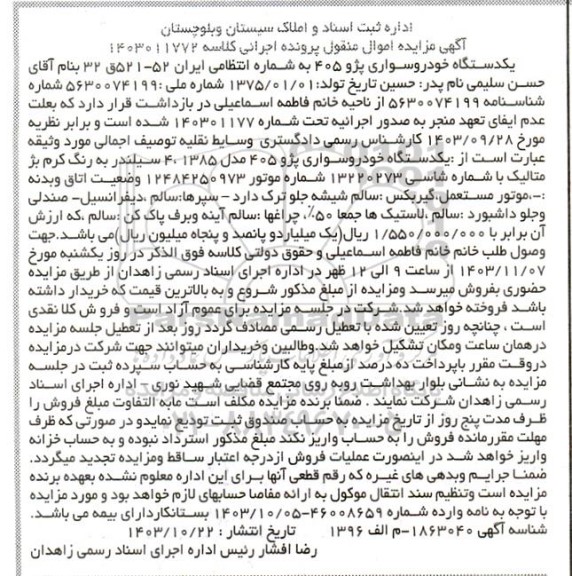 اداره ثبت اسناد و املاک سیستان وبلوچستان
آگهی مزایده اموال منقول پرونده اجرائی کلاسه ۱۴۰۳۰۱۱۷۷۲
یکدستگاه خودروسواری پژو ۴۰۵ به شماره انتظامی ایران ۵۲-۵۲۱ق ۳۲ بنام آقای
حسن سلیمی نام پدر: حسین تاریخ تولد:۱۳۷۵/۰۱/۰۱ شماره ملی :۵۶۳۰۰۷۴۱۹۹ شماره
شناسنامه ۵۶۳۰۰۷۴۱۹۹ از ناحیه خانم فاطمه اسماعیلی در بازداشت قرار دارد که بعلت
عدم ایفای تعهد منجر به صدور اجرائیه تحت شماره ۱۴۰۳۰۱۱۷۷ شده است و برابر نظریه
مورخ ۱۴۰۳/۰۹/۲۸ کارشناس رسمی دادگستری وسایط نقلیه توصیف اجمالی مورد وثیقه
عبارت است از :یکدستگاه خودروسواری پژو ۴۰۵ مدل ۱۳۸۵ ،۴ سیلندر به رنگ کرم بژ
متالیک با شماره شاسی ۱۳۲۲۰۲۷۳ شماره موتور ۱۲۴۸۴۲۵۰۹۷۳ وضعیت اتاق وبدنه
:-،موتور مستعمل گیربکس :سالم شیشه جلو ترک دارد – سپرها:سالم ،دیفرانسیل- صندلی
وجلو داشبورد :سالم ،لاستیک ها جمعا ۵۰٪، چراغها :سالم آینه وبرف پاک کن :سالم ،که ارزش
آن برابر با ۱/۵۵۰/۰۰۰/۰۰۰ ریال(یک میلیاردو پانصد و پنجاه میلیون ریال)می باشد.جهت
وصول طلب خانم خانم فاطمه اسماعیلی و حقوق دولتی کلاسه فوق الذکر در روز یکشنبه مورخ
۱۴۰۳/۱۱/۰۷ از ساعت ۹ الی ۱۲ ظهر در اداره اجرای اسناد رسمی زاهدان از طریق مزایده
حضوری بفروش میرسد ومزایده از مبلغ مذکور شروع و به بالاترین قیمت که خریدار داشته
باشد فروخته خواهد شد شرکت در جلسه مزایده برای عموم آزاد است و فروش کلا نقدی
است ، چنانچه روز تعیین شده با تعطیل رسمی مصادف گردد روز بعد از تعطیل جلسه مزایده
درهمان ساعت ومکان تشکیل خواهد شد.وطالبین وخریداران میتوانند جهت شرکت درمزایده
دروقت مقرر باپرداخت ده درصد ازمبلغ پایه کارشناسی به حساب سپرده ثبت در جلسه
مزایده به نشانی بلوار بهداشت روبه روی مجتمع قضایی شهید نوری – اداره اجرای اسناد
رسمی زاهدان شرکت نمایند . ضمنا برنده مزایده مکلف است مابه التفاوت مبلغ فروش را
ظرف مدت پنج روز از تاریخ مزایده به حساب صندوق ثبت تودیع نماید و در صورتی که ظرف
مهلت مقررمانده فروش را به حساب واریز نکند مبلغ مذکور استرداد نبوده و به حساب خزانه
واریز خواهد شد در اینصورت عملیات فروش ازدرجه اعتبار ساقط ومزایده تجدید میگردد.
ضمنا جرایم وبدهی های غیره که رقم قطعی آنها برای این اداره معلوم نشده بعهده برنده
مزایده است وتنظیم سند انتقال موکول به ارائه مفاصا حسابهای لازم خواهد بود و مورد مزایده
با توجه به نامه وارده شماره ۴۶۰۰۸۶۵۹-۱۴۰۳/۱۰/۰۵ بستانکاردارای بیمه می باشد.
شناسه آگهی ۱۸۶۳۰۴۰-م الف ۱۳۹۶ تاریخ انتشار : ۱۴۰۳/۱۰/۲۲
رضا افشار رئیس اداره اجرای اسناد رسمی زاهدان